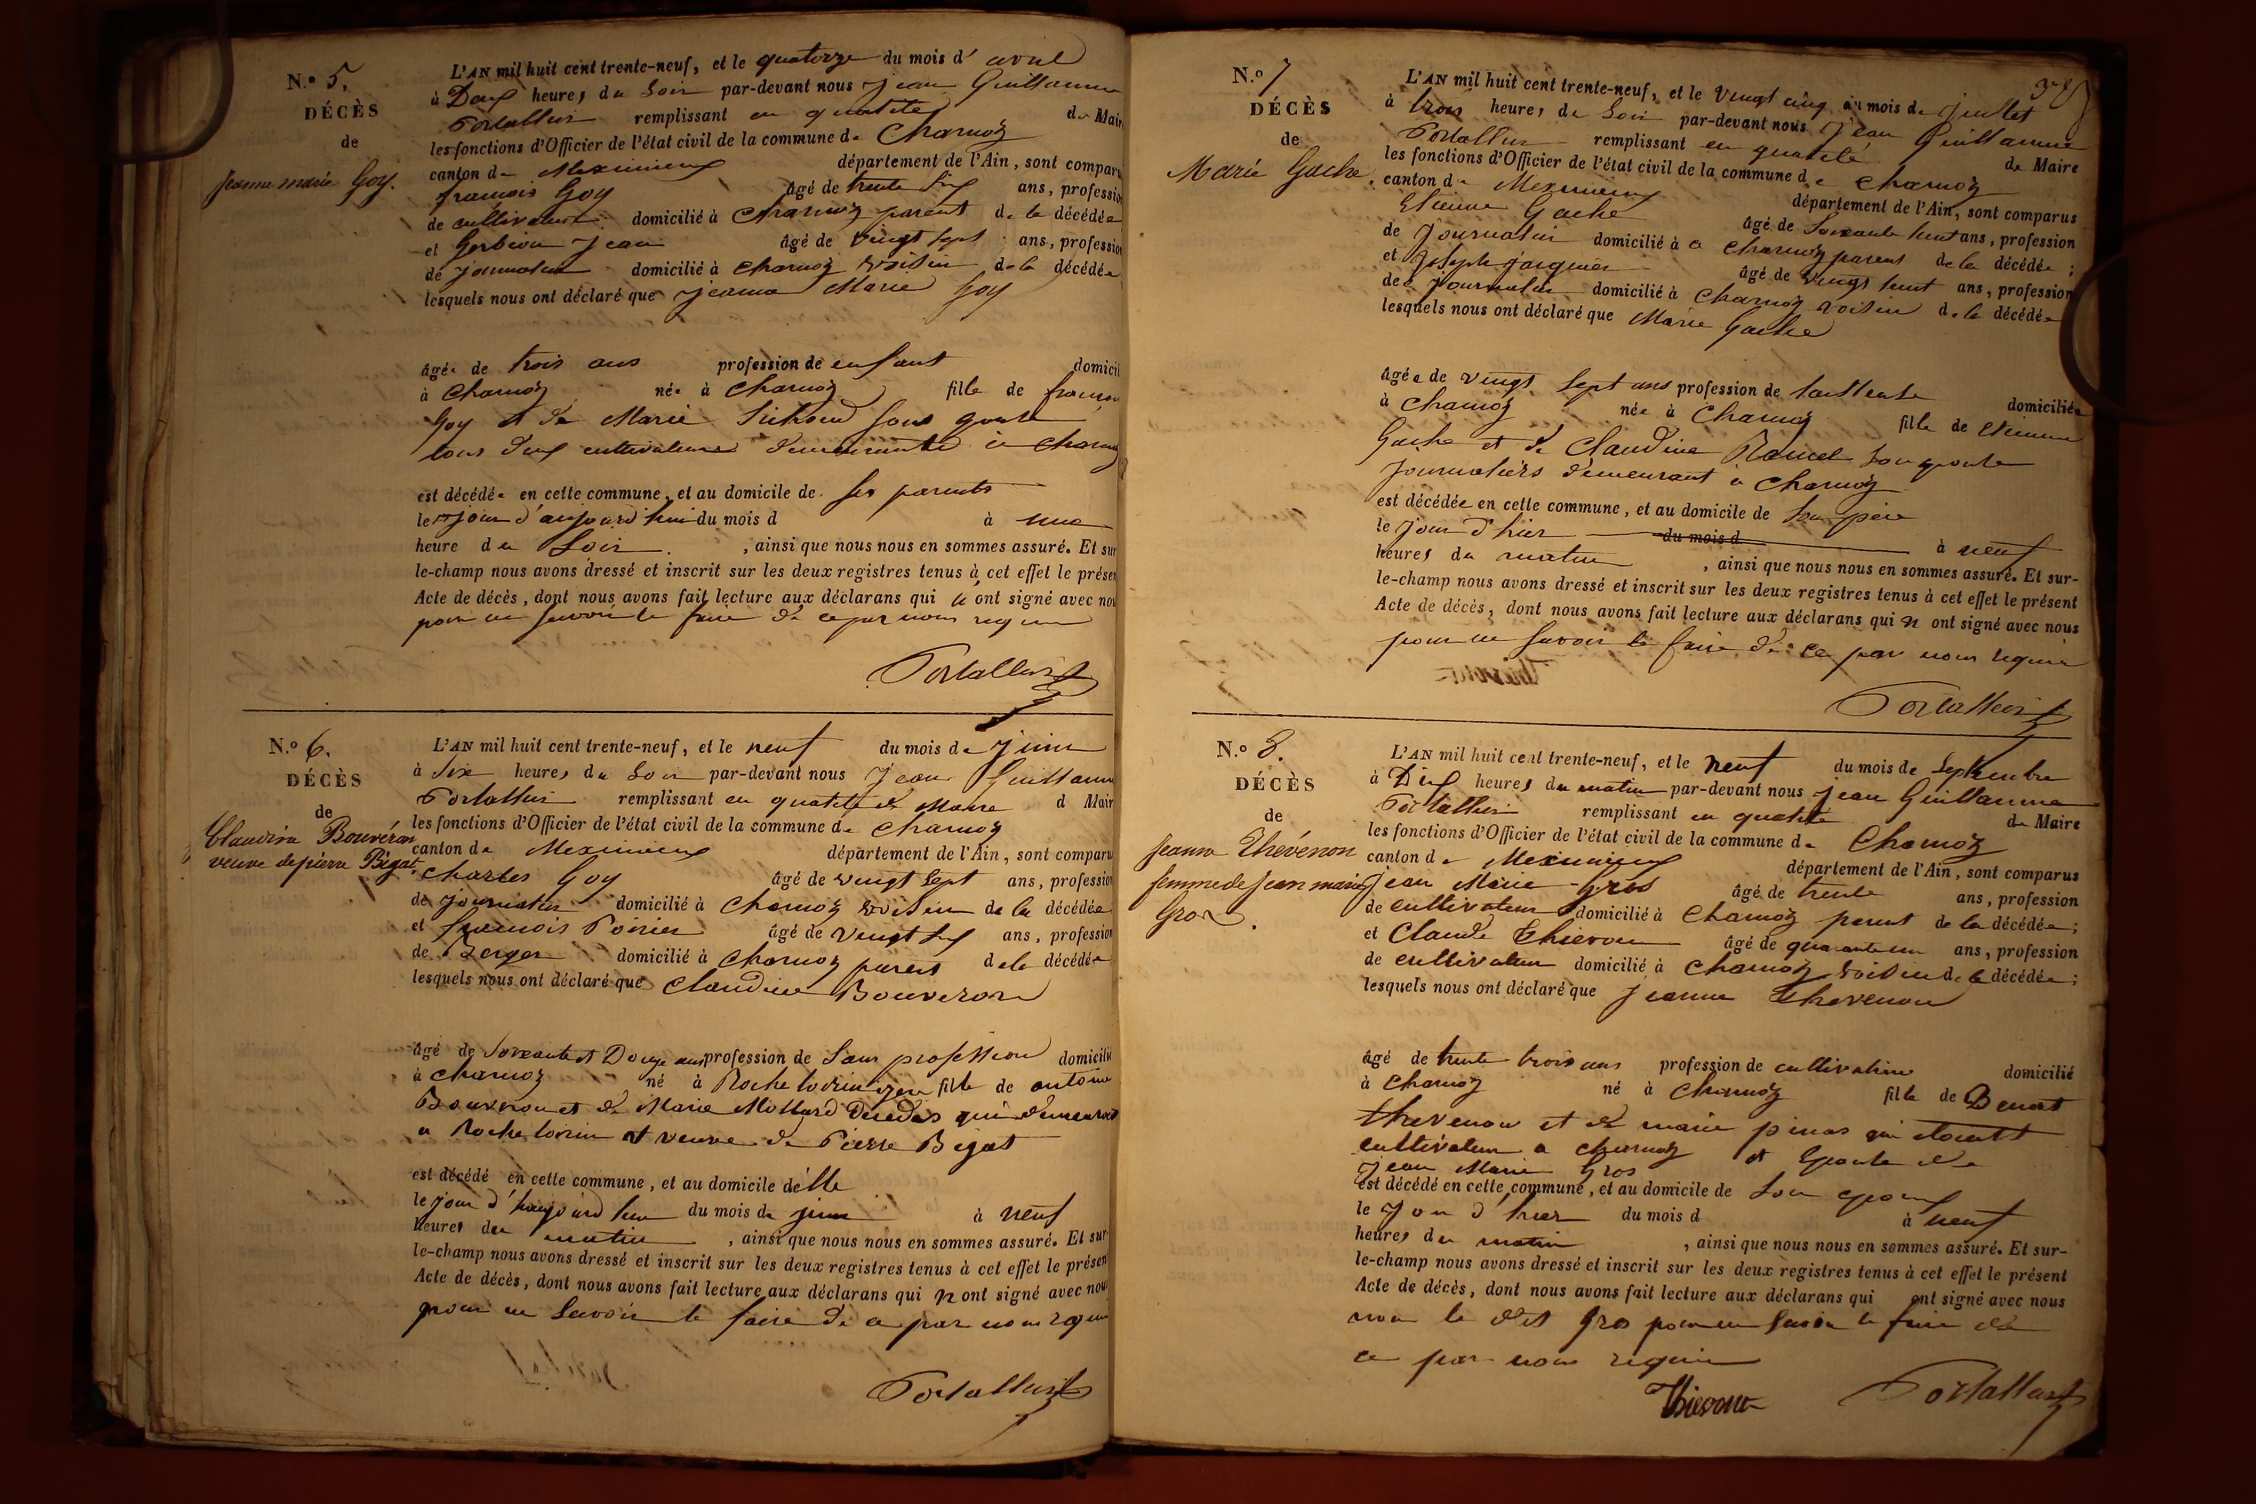 N.º 5.
DÉCÈS
de
Jeanne marie Goy.
L'AN mil huit cent trente-neuf, et le quatorze du mois d' avril
à Deux heures du Soir par-devant nous Jean Guillaume
Portallier remplissant en qualité de Mair
les fonctions d'Officier de l'état civil de la commune de Charnoz
canton de Meximieux département de l'Ain, sont comparu
francois Goy âgé de trente Six ans, profession
de cultivateur domicilié à Charnoz parent de la décédée
et Jean âgé de vingt sept ans, profession
de Journalier domicilié à Charnoz voisin de la décédée
lesquels nous ont déclaré que Jeanne Marie Goy
âgée de trois ans profession de enfant domicil
à Charnoz née à Charnoz fille de francois
Goy et de Marie Son epouse
tous deux cultivateurs demeurants à Charnoz
est décédée en cette commune, et au domicile de Ses parents
le jour d'aujourd'hui du mois d à une
heure du Soir , ainsi que nous nous en sommes assuré. Et sur
le-champ nous avons dressé et inscrit sur les deux registres tenus à cet effet le présen
Acte de décès, dont nous avons fait lecture aux déclarans qui n ont signé avec nou
pour ne savoir le faire de ce par nous requis
Portallier
N.º 6.
DÉCÈS
de
Claudina Bouvéron
veuve de pierre Bégat.
L'AN mil huit cent trente-neuf, et le neuf du mois de Juin
à Six heures du Soir par-devant nous Jean Guillaume
Portallier remplissant en qualité de Maire d Mair
les fonctions d'Officier de l'état civil de la commune de Charnoz
canton de Meximieux département de l'Ain, sont comparu
Charles Goy âgé de vingt Sept ans, profession
de journalier domicilié à Charnoz voisin de la décédée
et francois Poirier âgé de vingt Six ans, profession
de Berger domicilié à Charnoz parent de la décédée
lesquels nous ont déclaré que Claudine Bouveron
âgé de Soixante et Douze ans profession de Sans profession domicilié
à Charnoz né à Roche fille de antoine
Bouveron et de Marie Mollard Décédés qui demeuroit
a Roche et veuve de Pierre Begat
est décédé en cette commune, et au domicile d'elle
le jour d'haujourd hui du mois de juin à neuf
heures du matin , ainsi que nous nous en sommes assuré. Et sur
le-champ nous avons dressé et inscrit sur les deux registres tenus à cet effet le présen
Acte de décès, dont nous avons fait lecture aux déclarans qui n ont signé avec nou
pour ne Savoir le faire de ce par nous requis
Portallier
38
N.º 7
DÉCÈS
de
Marie Gache.
L'AN mil huit cent trente-neuf, et le Vingt cinq du mois de Juillet
à trois heures du Soir par-devant nous Jean Guillaume
Portallier remplissant en qualité de Maire
les fonctions d'Officier de l'état civil de la commune de Charnoz
canton de Meximieux département de l'Ain, sont comparus
Etienne Gache âgé de Soixante huit ans, profession
de Journalier domicilié à a Charnoz parent de la décédée ;
et Joseph Jacquier âgé de vingt huit ans, profession
de Journalier domicilié à Charnoz voisin de la décédée
lesquels nous ont déclaré que Marie Gache
âgée de vingt Sept ans profession de tailleuse domiciliée
à Charnoz née à Charnoz fille de etienne
Gache et de Claudine Ramel Son epouse
journaliers demeurant à Charnoz
est décédée en cette commune, et au domicile de Son père
le jour d'hier du mois d à neuf
heures du matin , ainsi que nous nous en sommes assuré. Et sur-
le-champ nous avons dressé et inscrit sur les deux registres tenus à cet effet le présent
Acte de décès, dont nous avons fait lecture aux déclarans qui n ont signé avec nous
pour ne Savoir le faire de ce par nous requis
Portallier
N.º 8.
DÉCÈS
de
Jeanne Thévenon
femme de Jean marie
Gros.
L'AN mil huit cent trente-neuf, et le neuf du mois de Septembre
à Dix heures du matin par-devant nous jean Guillaume
Portallier remplissant en qualité de Maire
les fonctions d'Officier de l'état civil de la commune de Charnoz
canton de Meximieux département de l'Ain, sont comparus
jean Marie Gros âgé de trente ans, profession
de cultivateur domicilié à Charnoz parent de la décédée ;
et Claude Thievon âgé de quarante un ans, profession
de cultivateur domicilié à Charnoz voisin de la décédée ;
lesquels nous ont déclaré que Jeanne Thevenon
âgé de trente trois ans profession de cultivatrice domicilié
à Charnoz né à Charnoz fille de Benoit
thevenon et de marie pinas qui etoient
cultivateur a charnoz et Epouse de
Jean Marie Gros
est décédé en cette commune, et au domicile de Son epoux
le Jour d'hier du mois d à neuf
heures du matin , ainsi que nous nous en sommes assuré. Et sur-
le-champ nous avons dressé et inscrit sur les deux registres tenus à cet effet le présent
Acte de décès, dont nous avons fait lecture aux déclarans qui ont signé avec nous
non le dit Gros pour ne Savoir le faire de
ce par nous requis
Thievon Portallier